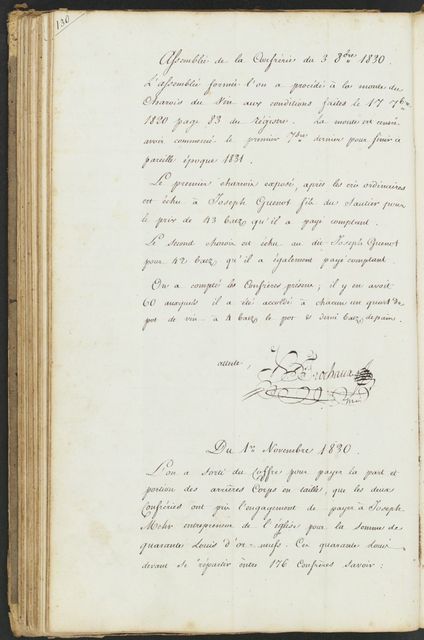 130
Assemblée de la Confrérie du 3 8bre 1830.
L'assemblée formée l'on a procédé à la monte du
Charois du Vin aux conditions faites le 17 7bre
1820 page 83 du régistre. La monte est censée
avoir commencé le premier 7bre dernier pour finir à
pareille époque 1831.
Le premier charroix exposé, après les cris ordinaires
est échu à Joseph Guenot fils du Sautier pour
le prix de 43 batz qu'il a payé comptant.
Le second charoix est échu au dit Joseph Guenot
pour 42 batz qu'il a également payé comptant.
On a compté les Confrères présens; il y en avoit
60 auxquels il a été accordé à chacun un quart de
pot de vin à 4 batz le pot & demi batz de pain.
atteste,
Frochaux
Du 1er Novembre 1830.
L'on a sorti du Coffre pour payer la part et
portion des arrières Corps en taille, que les deux
Confréries ont pris l'engagement de payer à Joseph
Mohr entrepreneur de l'église pour la somme de
quarante Louis d'or-neufs. Ces quarante Louis
devant se répartir entre 176 Confrères savoir: